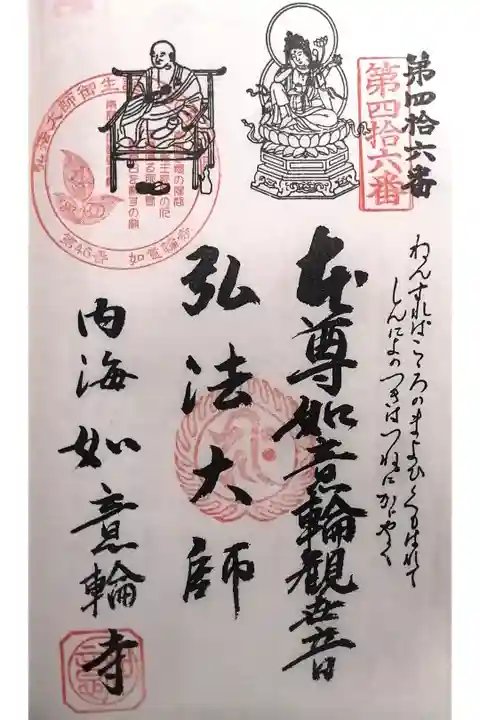 第四拾六番
第四拾六番
ねんずればこころのまよひくもはれて
しんによのつきはつねにかがやく
本尊如意輪観世音
弘法大師
内海如意輪寺
弘法大師御生誕
第46番 如意輪寺